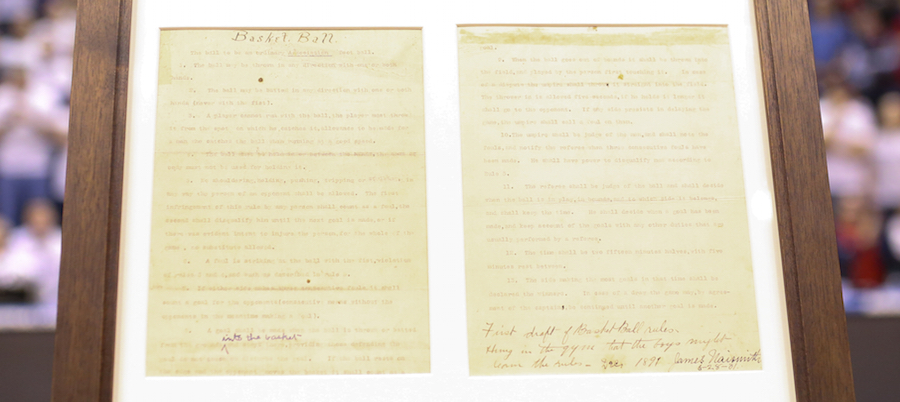 Basket Ball.
The ball to be an ordinary Association foot ball.
1. The ball may be thrown in any direction with one or both
hands.
2. The ball may be batted in any direction with one or both
hands (never with the fist).
3. A player cannot run with the ball, the player must throw
it from the spot on which he catches it, allowance to be made for
a man who catches the ball when running at a good speed.
4. The ball must be held in or between the hands, the arms or
body must not be used for holding it.
5. No shouldering, holding, pushing, tripping or striking in
any way the person of an opponent shall be allowed. The first
infringement of this rule by any person shall count as a foul, the
second shall disqualify him until the next goal is made, or if
there was evident intent to injure the person, for the whole of the
game, no substitute allowed.
6. A foul is striking at the ball with the fist, violation
of rules 3 and 4, and such as described in rule 5.
7. If either side makes three consecutive fouls it shall
count a goal for the opponents (consecutive means without the
opponents in the meantime making a foul).
8. A goal shall be made when the ball is thrown or batted
into the basket
goal.
9. When the ball goes out of bounds it shall be thrown
into the field, and played by the person first touching it. In case
of a dispute the umpire shall throw it straight into the field.
The thrower in is allowed five seconds, if he holds it longer it
shall go to the opponent. If any side persists in delaying the
game, the umpire shall call a foul on them.
10. The umpire shall be judge of the men, and shall note the
fouls, and notify the referee when three consecutive fouls have
been made. He shall have power to disqualify men according to
Rule 5.
11. The referee shall be judge of the ball and shall decide
when the ball is in play, in bounds, and to which side it belongs,
and shall keep the time. He shall decide when a goal has been
made, and keep account of the goals with any other duties that are
usually performed by a referee.
12. The time shall be two fifteen minutes halves, with five
minutes rest between.
13. The side making the most goals in that time shall be
declared the winners. In case of a draw the game may, by agree-
ment of the captains, be continued until another goal is made.
First draft of Basket Ball rules.
Hung in the gym that the boys might
learn the rules - 1891 James Naismith
6-28-31